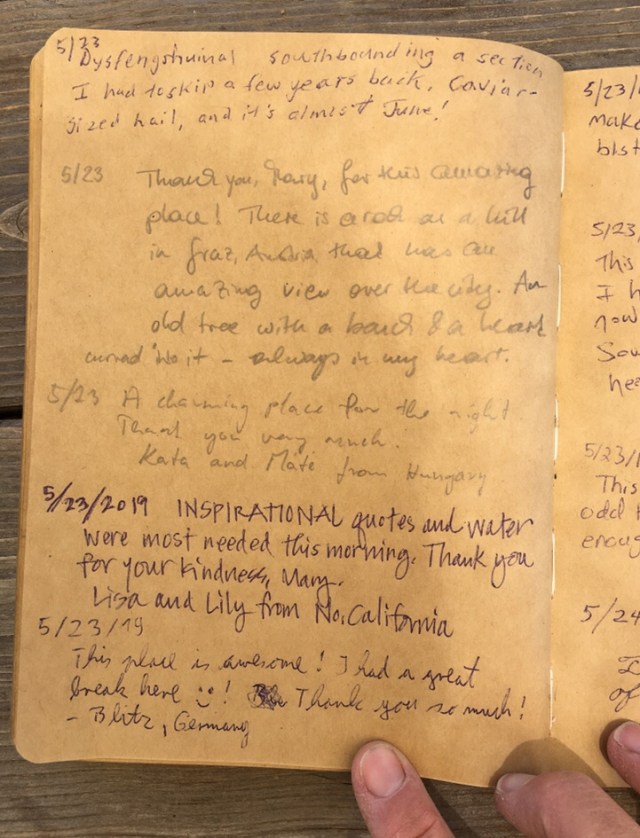 5/23
Dysfengshuinal southbounding a section
I had to skip a few years back. Caviar-
sized hail, and it's almost June!
5/23 Thank you, Mary, for this amazing
place! There is a rock on a hill
in Graz, Austria that has an
amazing view over the city. An
old tree with a bench & a heart
carved into it – always in my heart.
5/23 A charming place for the night.
Thank you very much.
Kata and Máté from Hungary
5/23/2019 INSPIRATIONAL quotes and water
were most needed this morning. Thank you
for your kindness, Mary.
Lisa and Lily from No. California
5/23/19
This place is awesome! I had a great
break here :-)! Thank you so much!
- Blitz, Germany
5/23/1
make
blst
5/23/
This
I h
now
Sou
hea
5/23/1
This
odd t
enoug
5/24
I
of